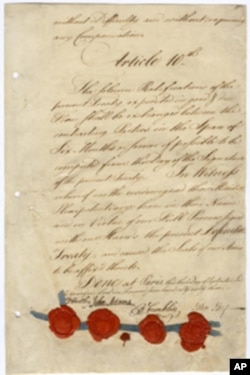 without Difficulty and without requiring
any Compensation.
Article 10th.
The solemn Ratifications of the
present Treaty expedited in good & due
Form shall be exchanged between the
contracting Parties in the Space of
Six Months or sooner if possible to be
computed from the Day of the Signature
of the present Treaty. In Witness
whereof we the undersigned their Ministers
Plenipotentiary have in their Name
and in Virtue of our Full Powers signed
with our Hands the present Definitive
Treaty, and caused the Seals of our Arms
to be affix'd thereto.
Done at Paris, this third day of September
John Adams
B Franklin
John Jay
AP